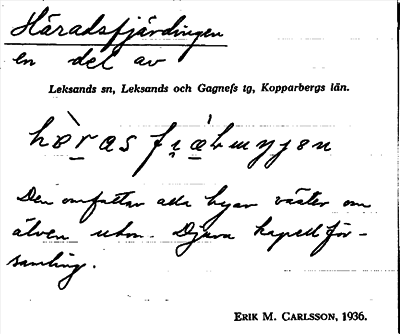 Häradsfjärdingen
en del av
Leksands sn, Leksands och Gagnefs tg, Kopparbergs län.
Den omfattar alla byar väster om
älven utom Djura kapellför-
samling.
ERIK M. CARLSSON, 1936.